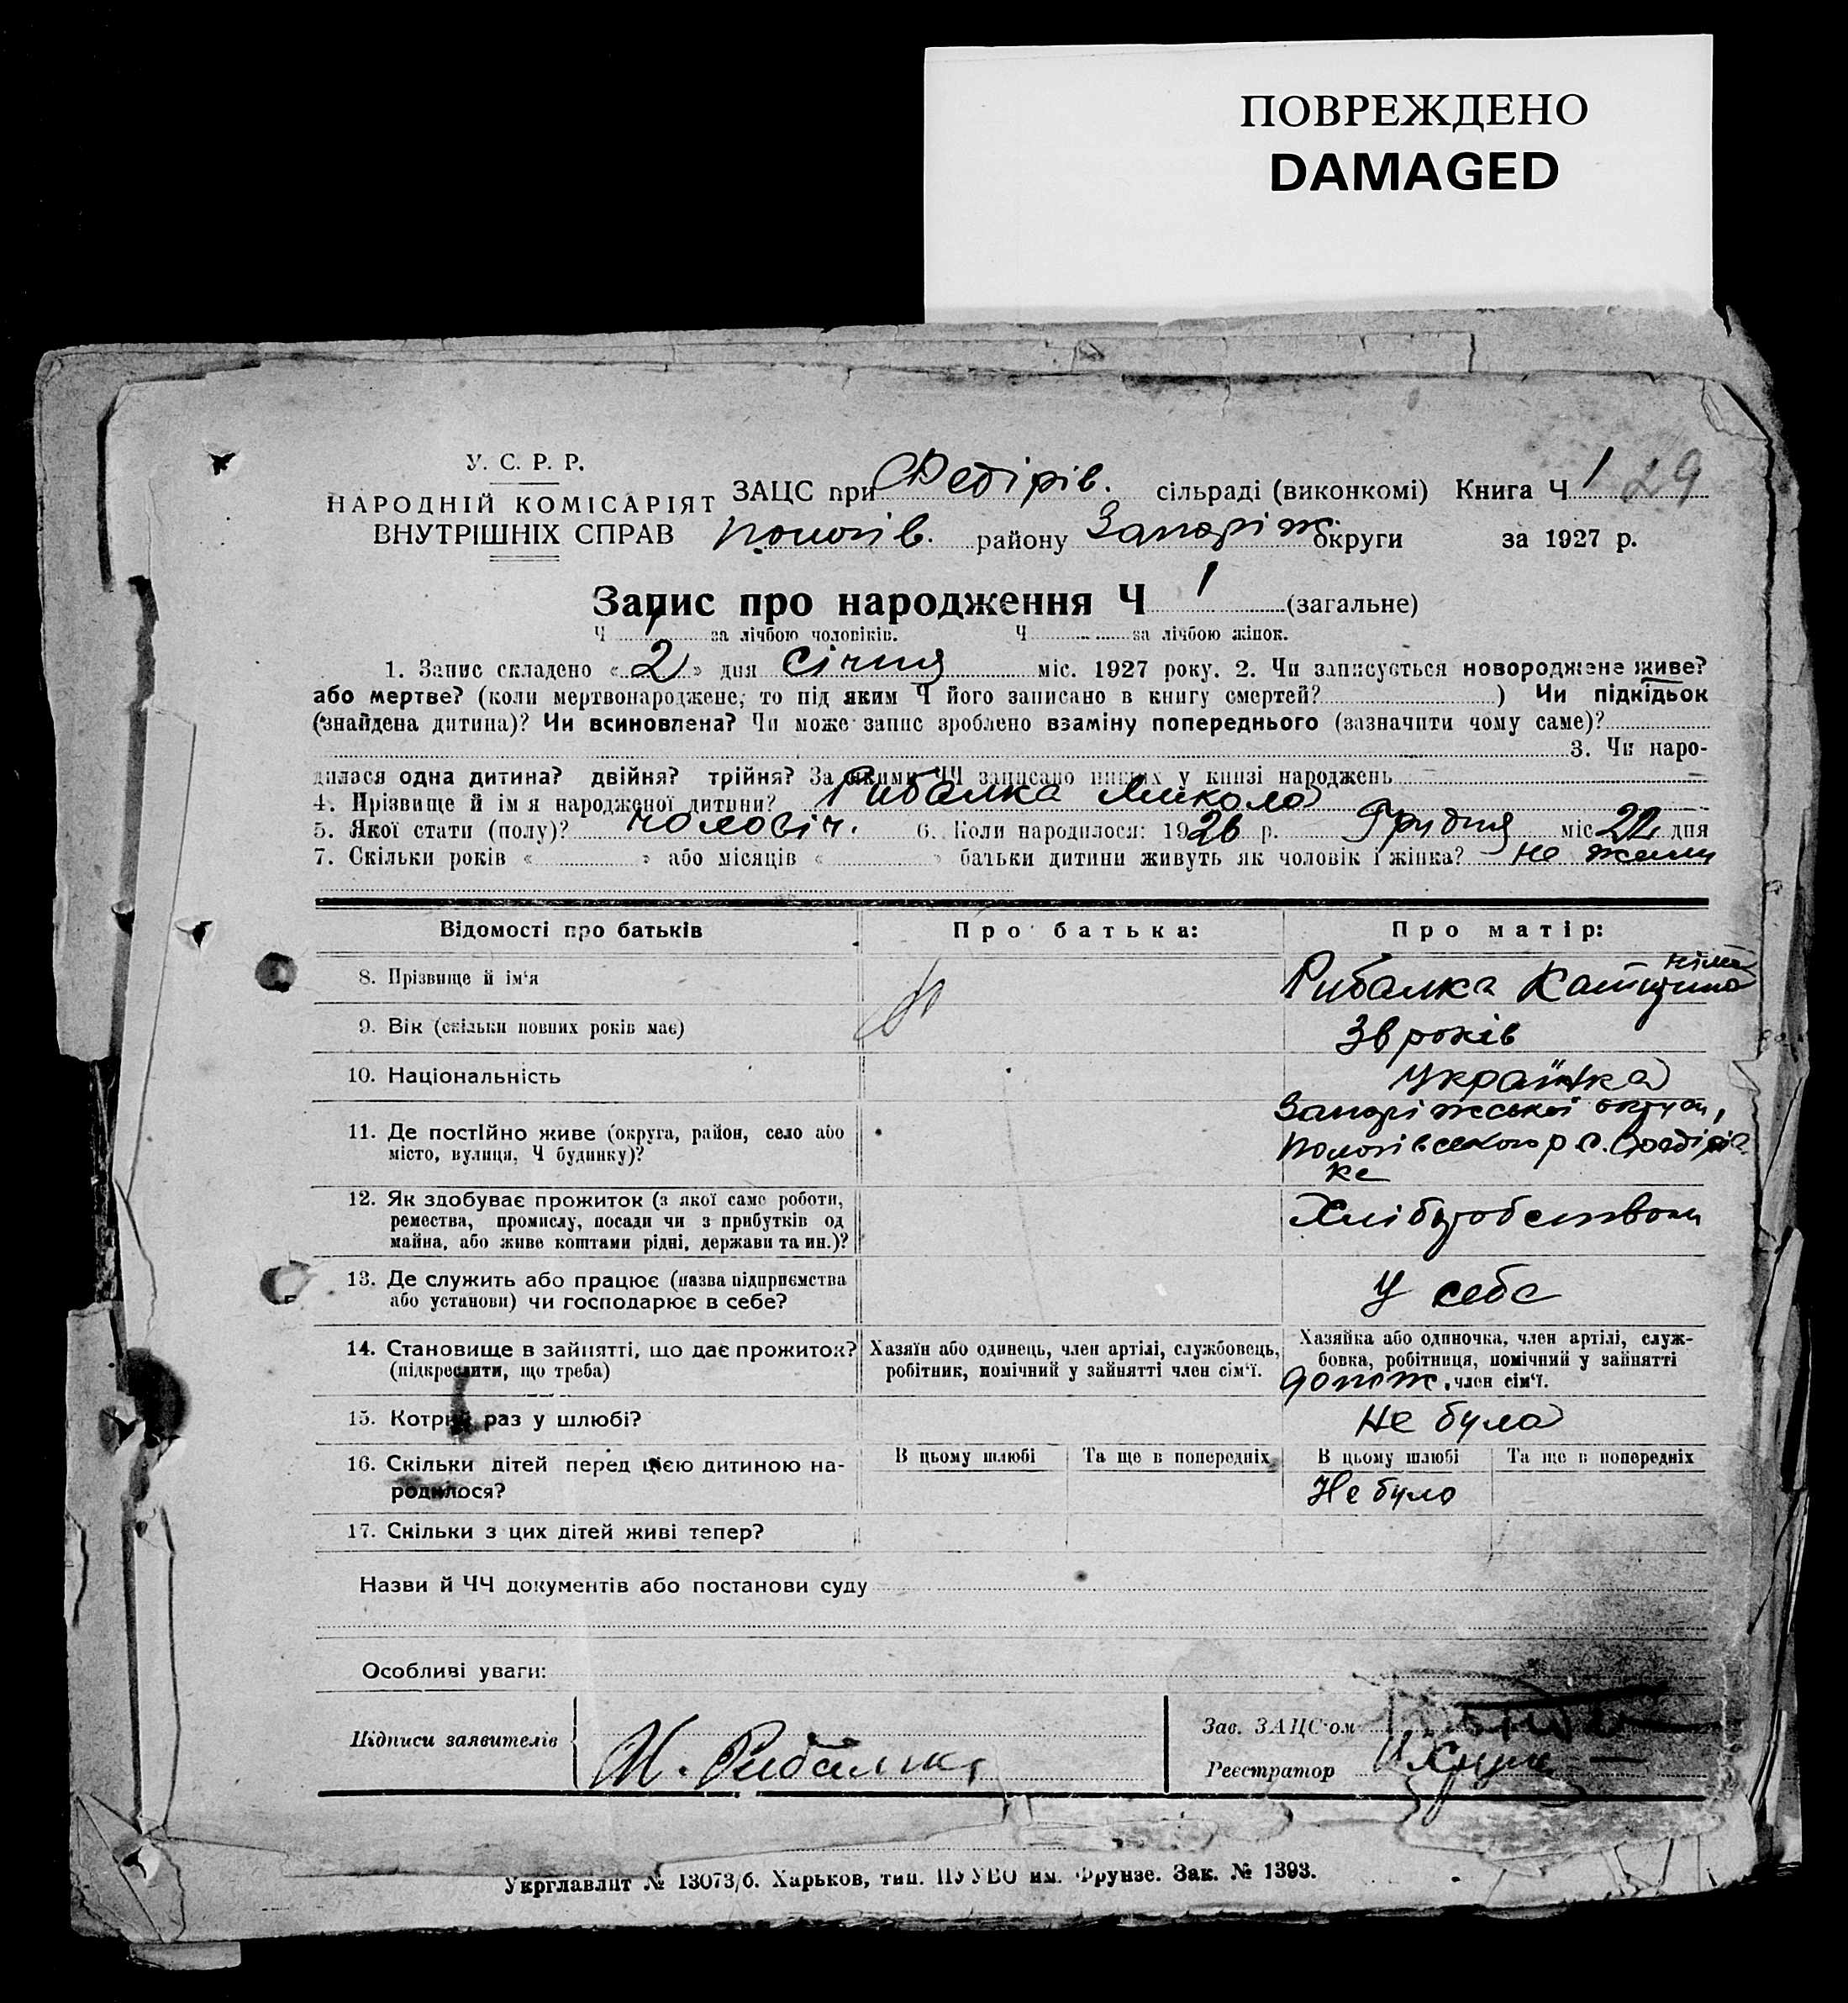 ПОВРЕЖДЕНО
DAMAGED
У. С. Р. Р.
НАРОДНІЙ КОМІСАРІЯТ
ВНУТРІШНІХ СПРАВ
ЗАЦС при Федірів. сільраді (виконкомі) Книга Ч 1 29
Пологів. району Запоріж. округи за 1927 р.
Запис про народження Ч 1 (загальне)
Ч 1 за лічбою чоловіків. Ч за лічбою жінок.
1. Запис складено «2» дня Січня міс. 1927 року. 2. Чи записується новороджене живе?
або мертве? (коли мертвонароджене, то під яким Ч його записано в книгу смертей? ) Чи підкідьок
(знайдена дитина)? Чи всиновлена? Чи може запис зроблено взаміну попереднього (зазначити чому саме)?
3. Чи наро-
дилася одна дитина? двійня? трійня? За якими ЧЧ записано инших у книзі народжень
4. Прізвище й ім я народженої дитини? Рибалка Микола
5. Якої стати (полу)? чоловіч. 6. Коли народилося: 1926 р. Грудня міс 22 дня
7. Скільки років « » або місяців « » батьки дитини живуть як чоловік і жінка? не жили
Відомості про батьків Про батька: Про матір:
8. Прізвище й ім'я Рибалка Катерина
9. Вік (скільки повних років має) 36 років
10. Національність Українка
11. Де постійно живе (округа, район, село або місто, вулиця, Ч будинку)? Запоріжської округи,
Пологівського р. с. Федірівке
12. Як здобуває прожиток (з якої саме роботи,
ремества, промислу, посади чи з прибутків од
майна, або живе коштами рідні, держави та ин.)? Хліборобством
13. Де служить або працює (назва підприємства
або установи) чи господарює в себе? У себе
14. Становище в зайнятті, що дає прожиток?
(підкреслити, що треба)
Хазяїн або одинець, член артілі, службовець,
робітник, помічний у зайнятті член сім'ї.
Хазяйка або одиночка, член артілі, служ-
бовка, робітниця, помічний у зайнятті
член сім'ї.
15. Котрий раз у шлюбі? Не була
16. Скільки дітей перед цією дитиною на-
родилося?
В цьому шлюбі Та ще в попередніх В цьому шлюбі Та ще в попередніх
Не було
17. Скільки з цих дітей живі тепер?
Назви й ЧЧ документів або постанови суду
Особливі уваги:
Підписи заявителів Н. Рибалка
Зав. ЗАЦС'ом
Реєстратор
Укрглавліт № 13073/б. Харьков, тип. ПУУВО им. Фрунзе. Зак. № 1393.